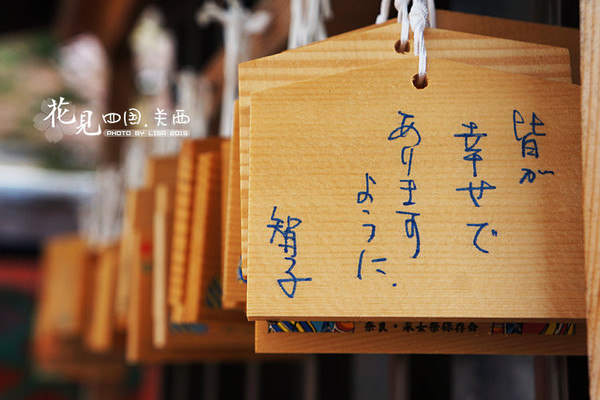 花見四国.关西
PHOTO BY LISA 2015
皆が
幸せで
あります
ように.
智子
奈良・采女祭保存会